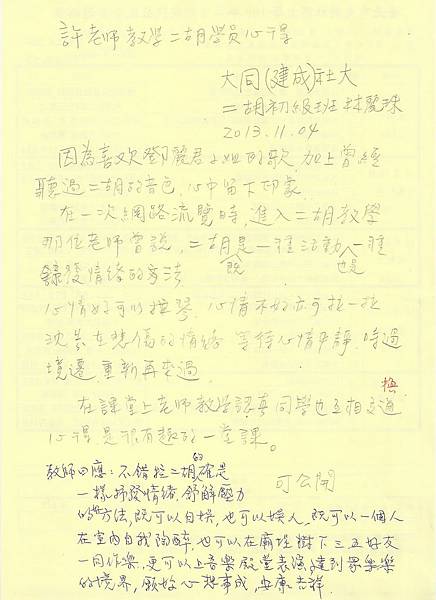 許老師教學二胡學員心得
大同(建成)社大
二胡初級班 林麗珠
2013.11.04
因為喜歡鄧麗君小姐的歌,加上曾經
聽過二胡的音色,心中留下印象
在一次網路流覽時,進入二胡教學
那位老師曾說,二胡既是一種活動也是一種
舒發情緒的方法
心情好可以拉琴,心情不好亦可拉一拉
沈失在悲傷的情緒 等待心情平靜,時過
境遷 重新再來過
在課堂上老師教學認真同學也互相交換
心得是很有趣的一堂課。
教師回應:不錯拉二胡的確是
一樣抒發情緒紓解壓力
的好方法,既可以自娛,也可以娛人,既可以一個人
在室內自我陶醉,也可以在廟埕樹下三五好友
一同作樂,更可以上音樂殿堂表演,達到眾樂樂
的境界,願妳心想事成,安康吉祥.
可公開